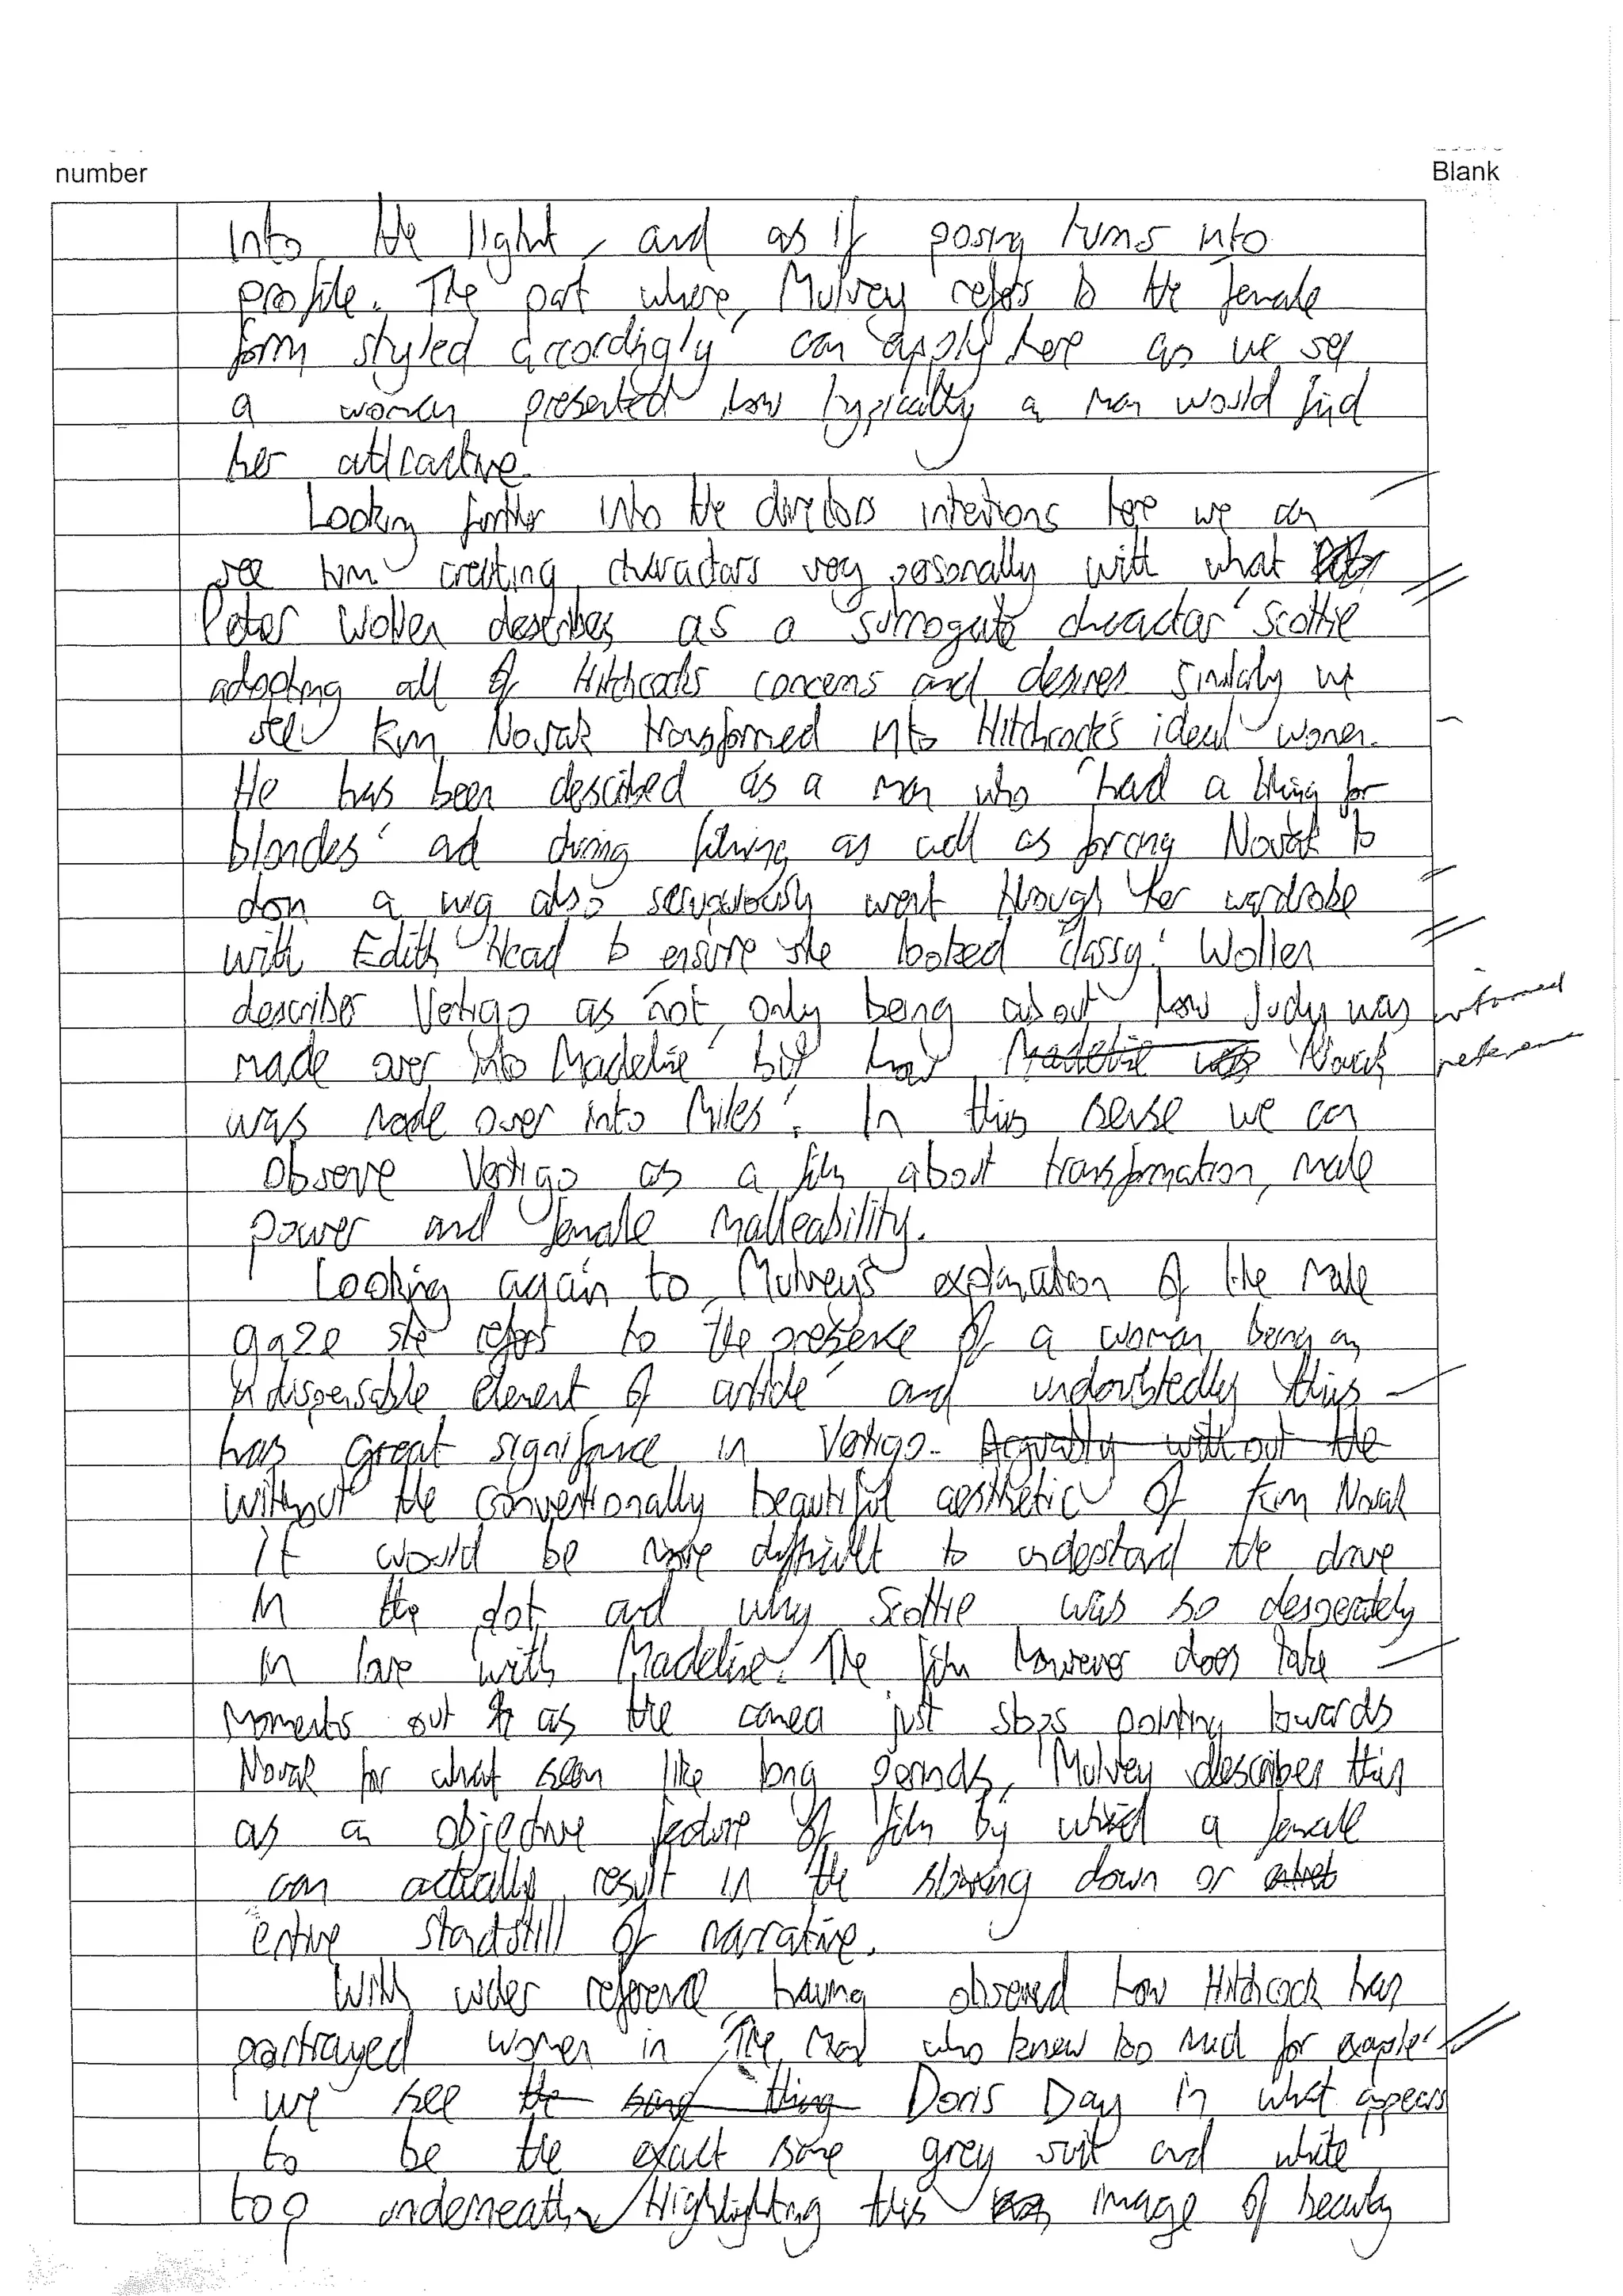 number
Blank
into the light, and as if posing turns into
profile. The part where Mulvey refers to the female
form styled accordingly' can apply here as we see
a woman presented how typically a man would find
her attractive.
Looking further into the directors intentions here we can
see him creating characters very personally with what
Peter Wollen describes as a 'surrogate character' Scottie
adopting all of Hitchcocks concerns and desires similarly we
see Kim Novak transformed into Hitchcock's ideal women.
He has been described as a man who 'had a thing for
blondes' and during filming as well as forcing Novak to
don a wig also went through her wardrobe
with Edith Head to ensure she looked 'classy'. Wollen
describes Vertigo as 'not only being about how Judy was
informed
made over into Madeline' but how Madeline was Novak
was made over into Miles'. In this sense we can
reference
observe Vertigo as a film about transformation, male
power and female malleability.
Looking again to Mulvey's explanation of the male
gaze she refers to 'the presence of a woman being an
indispensable element of article' and undoubtedly this
has great significance in Vertigo. Arguably without the
without the conventionally beautiful aesthetic of Kim Novak
it would be more difficult to understand the drive
in the plot and why Scottie was so desperately
in love with Madeline. The film however does take
moments out as the camea just stops pointing towards
Novak for what seem like long periods, Mulvey describes this
as an objective feature of film by which a female
can actually result in the slowing down or
entire standstill of narrative.
With wider reference having observed how Hitchcock has
portrayed women in 'The Man who knew too much for example'
we see the same thing Doris Day in what appears
to be the exact same grey suit and white
top underneath. Highlighting this image of beauty